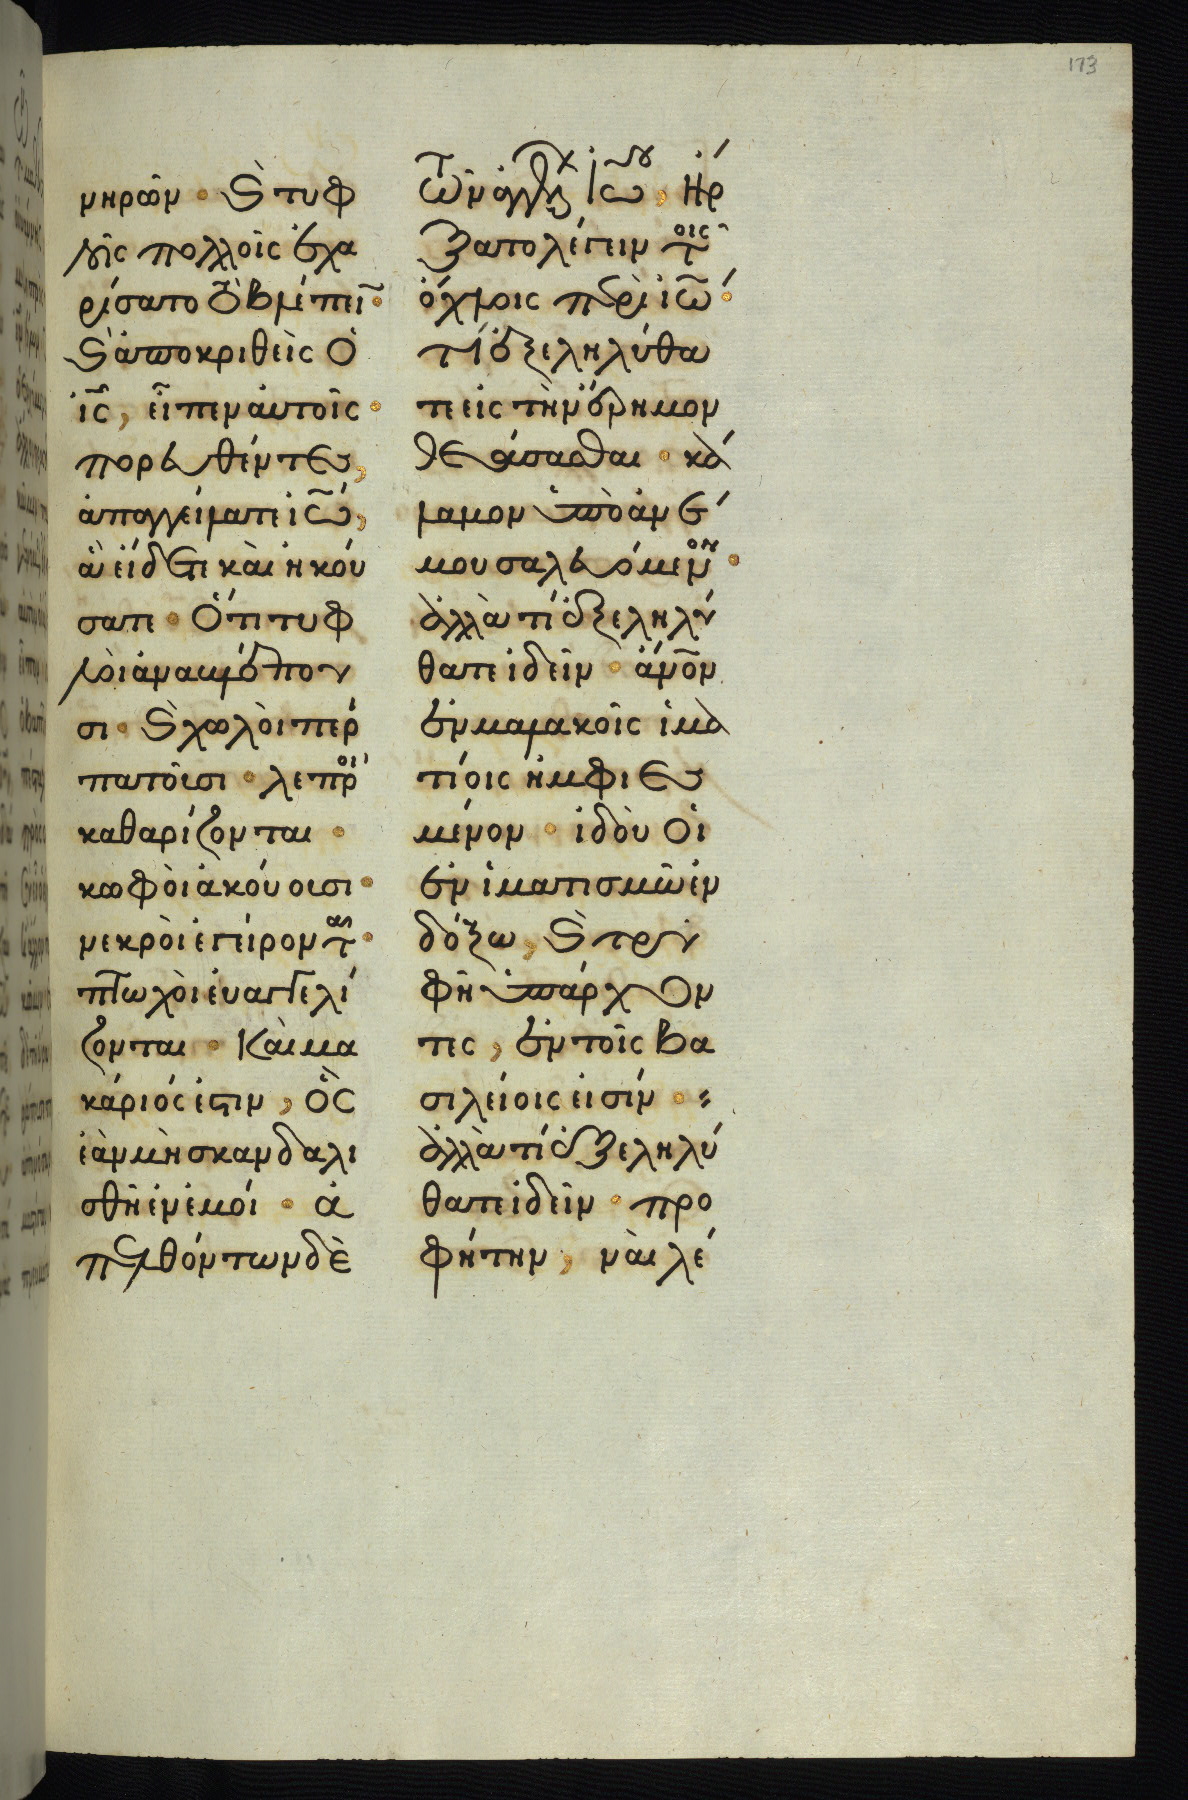 173
νηρῶν · καὶ τυφ
λοῖς πολλοῖς ἐχα
ρίσατο τὸ βλέπειν·
καὶ ἀποκριθεὶς ὁ
ις, εἶπεν αὐτοῖς ·
πορευθέντες,
ἀπαγγείλατε ἰω,
ἃ εἴδετε καὶ ἠκού
σατε · ὅτι τυφ
λοὶ ἀναβλέπου
σι · καὶ χωλοὶ περι
πατοῦσι · λεπροὶ
καθαρίζονται ·
κωφοὶ ἀκούουσι ·
νεκροὶ ἐγείρονται ·
πτωχοὶ εὐαγγελί
ζονται · Καὶ μα
κάριός ἐστιν, ὃς
ἐὰν μὴ σκανδαλι
σθῇ ἐν ἐμοί · ἀ
πελθόντων δὲ
τῶν ἀγγέλων Ἰωάννου, ἤρ
ξατο λέγειν τοῖς
ὄχλοις περὶ ἰω·
τί ἐξεληλύθα
τε εἰς τὴν ἔρημον
θεάσασθαι · κά
λαμον ὑπὸ ἀνέ
μου σαλευόμενον ·
ἀλλὰ τί ἐξεληλύ
θατε ἰδεῖν · ἄνον
ἐν μαλακοῖς ἱμα
τίοις ἠμφιεσ
μένον · ἰδοὺ οἱ
ἐν ἱματισμῷ ἐν
δόξω, καὶ τρυ
φῇ ὑπάρχον
τες, ἐν τοῖς βα
σιλείοις εἰσίν ·
ἀλλὰ τί ἐξεληλύ
θατε ἰδεῖν · προ
φήτην, ναὶ λέ